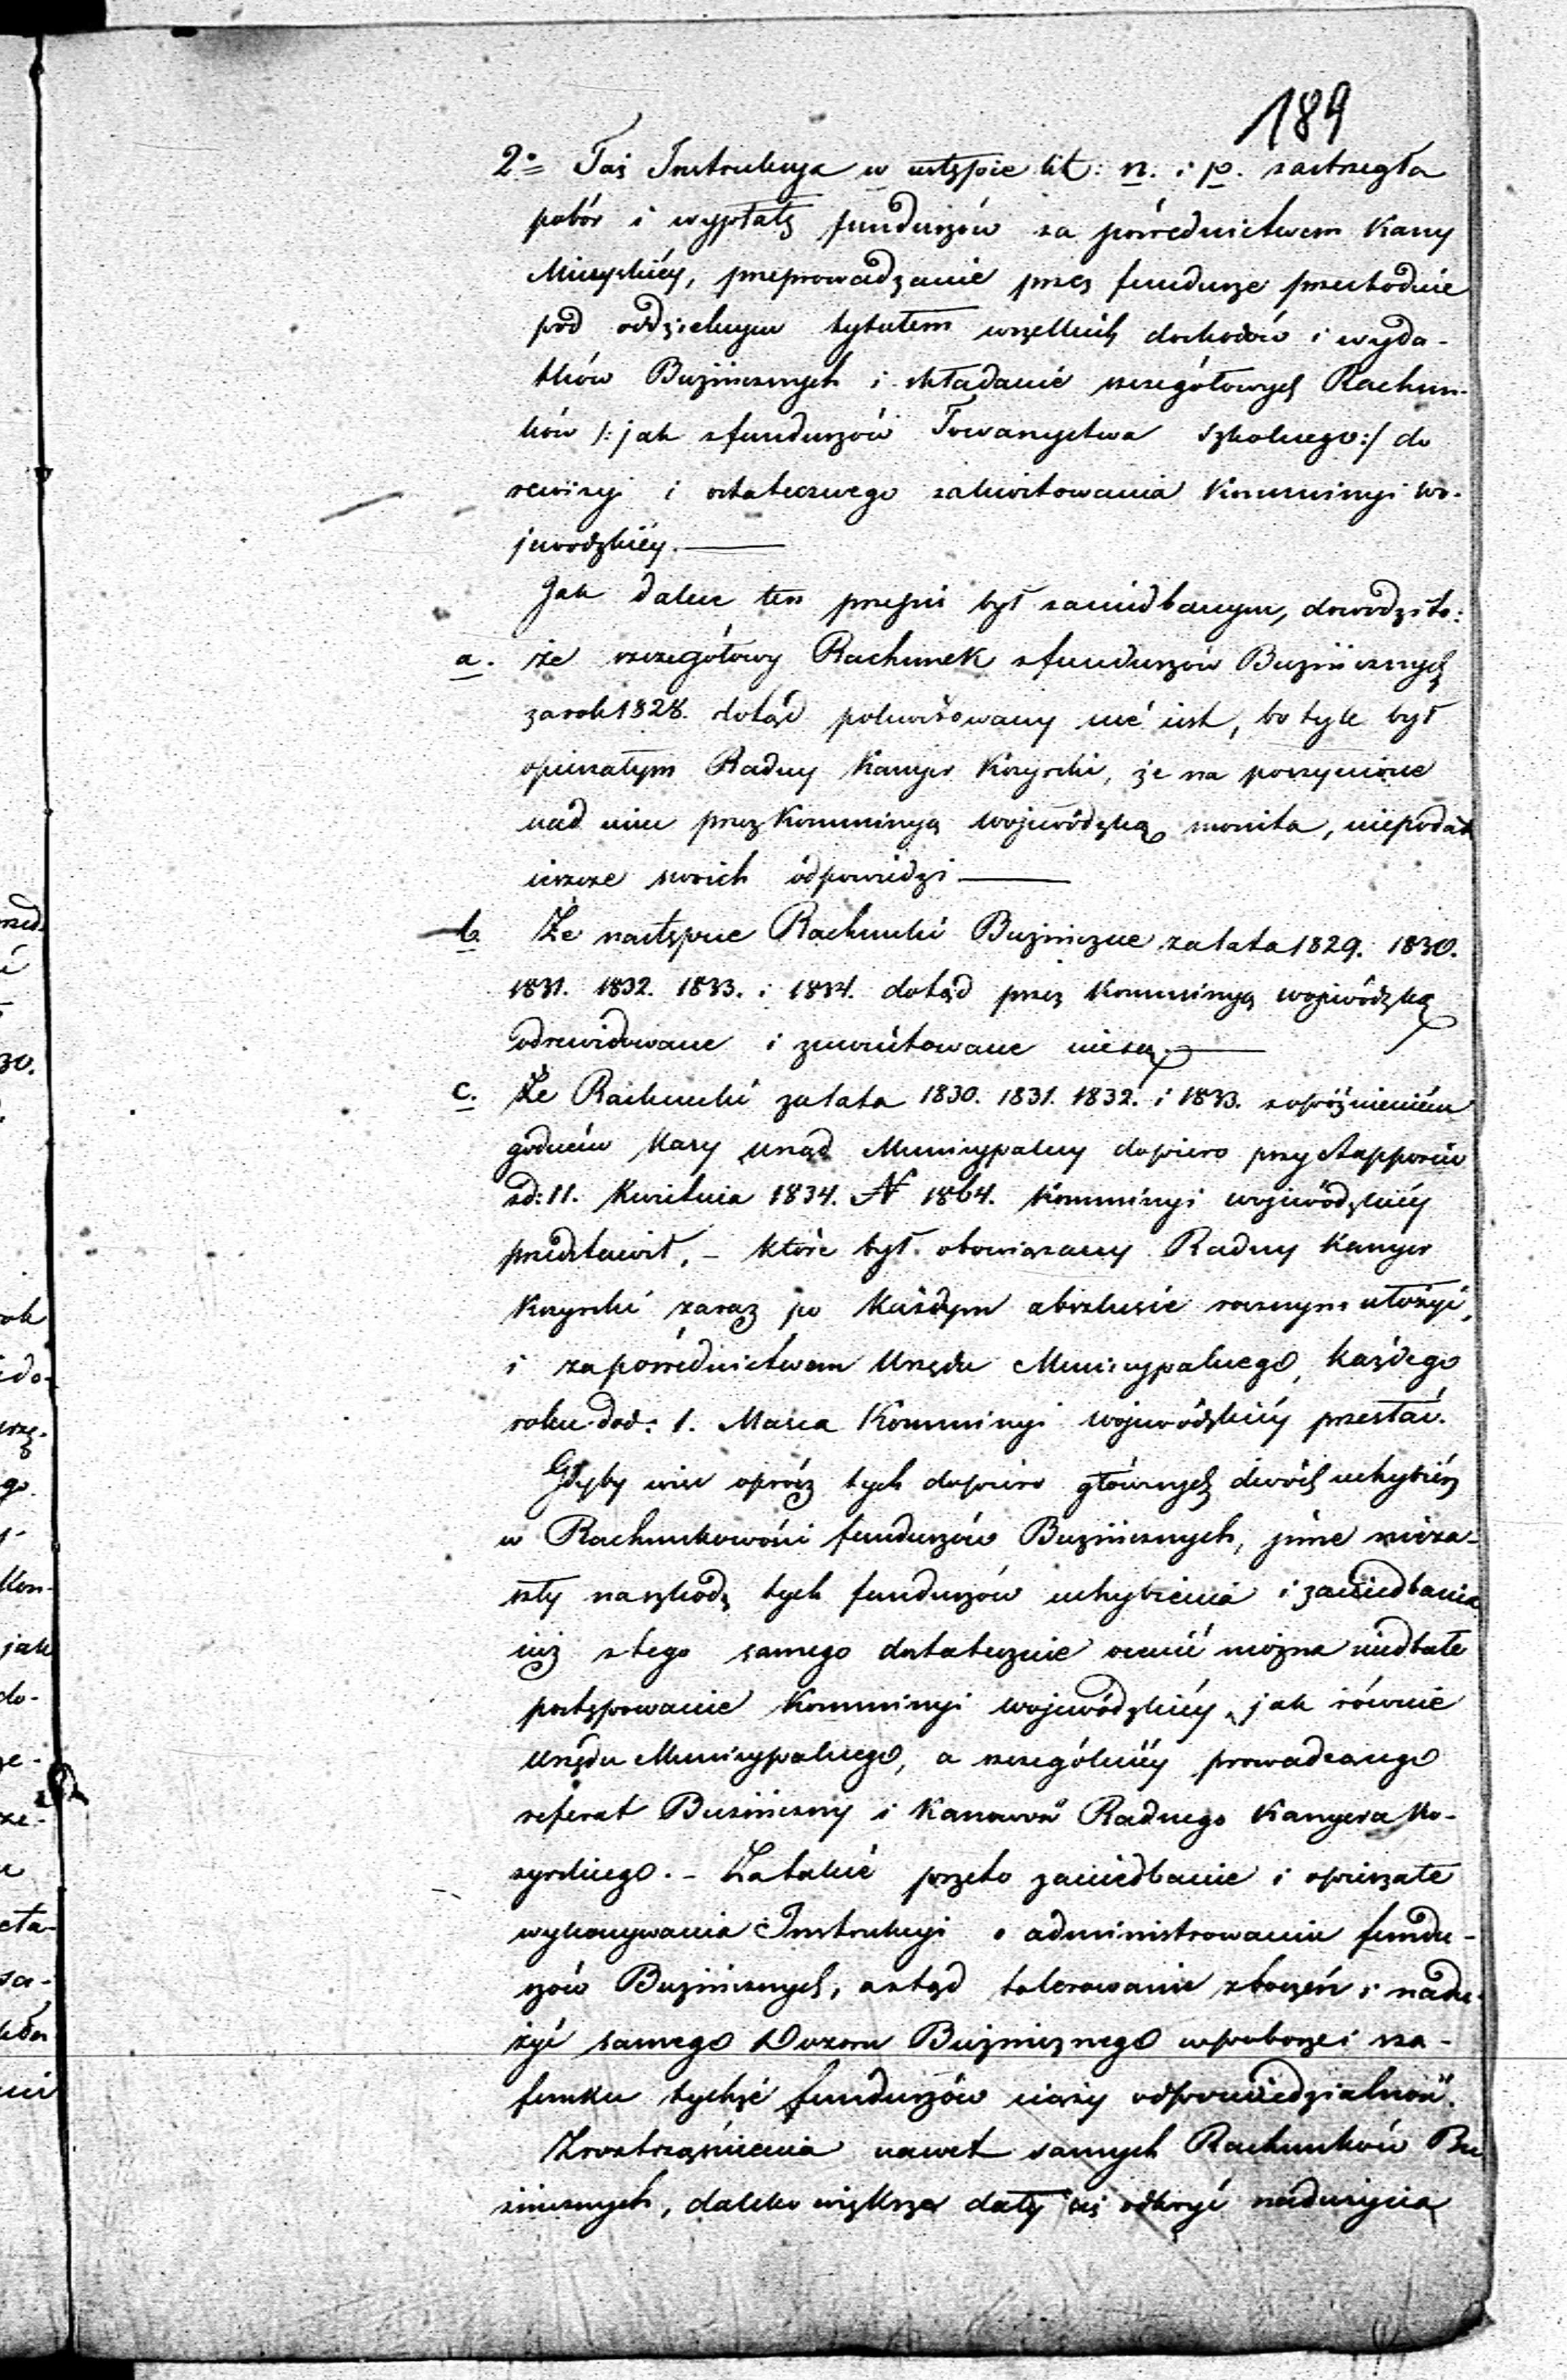 189
2º Taż Instrukcya w ustępie lit: n. i p. zastrzegła
pobór i wypłatę funduszów za pośrednictwem Kassy
Mieyskiéy, przeprowadzanie przez fundusze przechodnie
pod oddzielnym tytułem wszelkich dochodów i wyda-
tków Bużnicznych i składanie szczegółowych Rachun-
ków /: jak z funduszów Towarzystwa Szkolnego :/ do
rewizyi i ostatecznego zakwitowania Kommissyi Wo-
jewodzkiéy. —
Jak dalece ten przepis był zaniedbanym, dowodzi to:
a. że szczegółowy Rachunek z funduszów Bużnicznych
za rok 1828. dotąd pokwitowany nie iest, bo tyle był
opieszałym Radny Kassyer Kozyrski, że na poczynione
nad nim przez Kommissyą Wojewódzką monita, niepodał
ieszcze swoich odpowiedzi —
b. Że następne Rachunki Bużniczne za lata 1829. 1830.
1831. 1832. 1833. i 1834. dotąd przez Kommissyą Wojewódzką
odrewidowane i zkwitowane niesą. —
c. Że Rachunki za lata 1830. 1831. 1832. i 1833. z opóźnieniem
godnem kary Urząd Municypalny dopiero przy Rapporcie
z d: 11. Kwietnia 1834. N 1864. Kommissyi Wojewódzkiéy
przedstawił, – które był obowiązany Radny Kassyer
Kozyrski zaraz po każdym abszlusie rocznym ułożyć,
i za pośrednictwem Urzędu Municypalnego, każdego
roku dod: 1. Marca Kommissyi Wojewódzkiéy przesłać.
Gdyby więc oprócz tych dopiero głównych dwóch uchybień
w Rachunkowości funduszów Bużnicznych, jnne nieza-
szły na szkodę tych funduszów uchybienia i zaniedbania
iuż z tego samego dostatecznie ocenić można niedbałe
postępowanie Kommissyi Wojewódzkiéy, jak równie
Urzędu Municypalnego, a szczególniéy prowadzącego
referat Bużniczny i Kassowość Radnego Kassyera Ko-
zyrskiego. – Za takie przeto zaniedbanie i opieszałe
wykonywania Instrukcyi o administrowaniu fundu-
szów Bużnicznych, a ztąd tolerowanie zboczeń i nadu-
żyć samego Dozoru Bużnicznego w poborze i sza-
funku tychże funduszów ciąży odpowiedzialność.
Z roztrząśnienia nawet samych Rachunków Bu
żnicznych, daleko większe dały się odkryć nadużycia